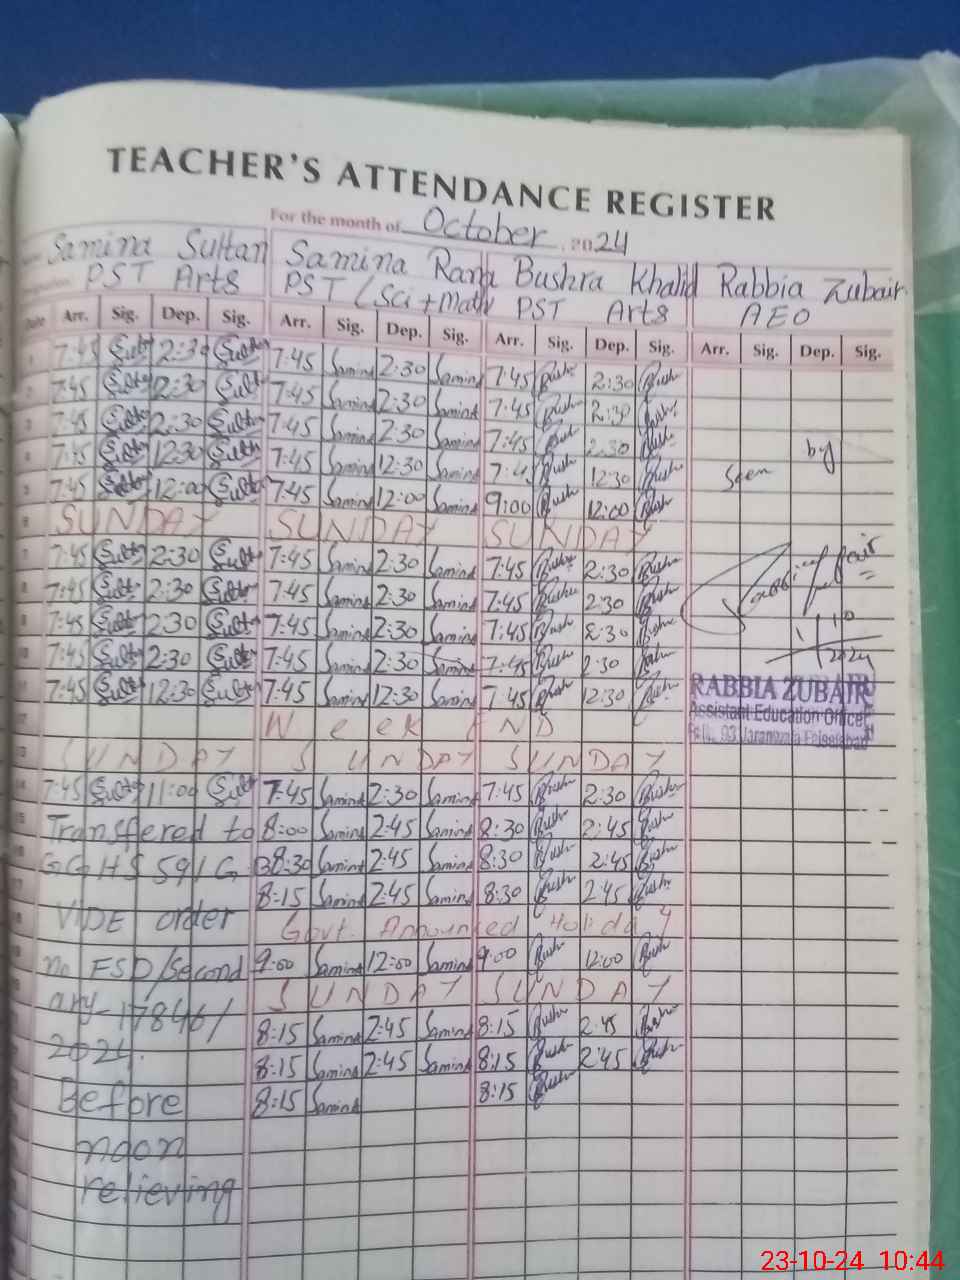 TEACHER'S ATTENDANCE REGISTER
For the month of October, 2024
Samina Sultan Samina Rana Bushra Khalid Rabbia Zubair
PST Arts PST (Sci + Math PST Arts AEO
Date Arr. Sig. Dep. Sig. Arr. Sig. Dep. Sig. Arr. Sig. Dep. Sig. Arr. Sig. Dep. Sig.
1 7:45 2:30 7:45 Samina 2:30 Samina 7:45 Bush 2:30 Bush
2 7:45 2:30 7:45 Samina 2:30 Samina 7:45 Bush 2:30 Bush
3 7:45 2:30 7:45 Samina 2:30 Samina 7:45 Bush 2:30 Bush
4 7:45 12:30 7:45 Samina 12:30 Samina 7:45 Bush 12:30 Bush
5 7:45 12:00 7:45 Samina 12:00 Samina 9:00 Bush 12:00 Bush
Seen by
6 SUNDAY SUNDAY SUNDAY
7 7:45 2:30 7:45 Samina 2:30 Samina 7:45 Bush 2:30 Bush
8 7:45 2:30 7:45 Samina 2:30 Samina 7:45 Bush 2:30 Bush
9 7:45 2:30 7:45 Samina 2:30 Samina 7:45 Bush 2:30 Bush
10 7:45 2:30 7:45 Samina 2:30 Samina 7:45 Bush 2:30 Bush
11 7:45 12:30 7:45 Samina 12:30 Samina 7:45 Bush 12:30 Bush
10
2024
RABBIA ZUBAIR
Assistant Education Officer
93 Jaranwala Faisalabad
12 Week END
13 SUNDAY SUNDAY SUNDAY
14 7:45 11:00 7:45 Samina 2:30 Samina 7:45 Bush 2:30 Bush
Transfered to 8:00 Samina 2:45 Samina 8:30 Bush 2:45 Bush
GGHS 591 GB 8:30 Samina 2:45 Samina 8:30 Bush 2:45 Bush
8:15 Samina 2:45 Samina 8:30 Bush 2:45 Bush
VIDE order Govt. Announced Holiday
no FSD/Second 9:00 Samina 12:00 Samina 9:00 Bush 12:00 Bush
ary-17846/ SUNDAY SUNDAY
8:15 Samina 2:45 Samina 8:15 Bush 2:45 Bush
2024. 8:15 Samina 2:45 Samina 8:15 Bush 2:45 Bush
Before 8:15 Samina 8:15 Bush
noon
relieving
23-10-24 10:44